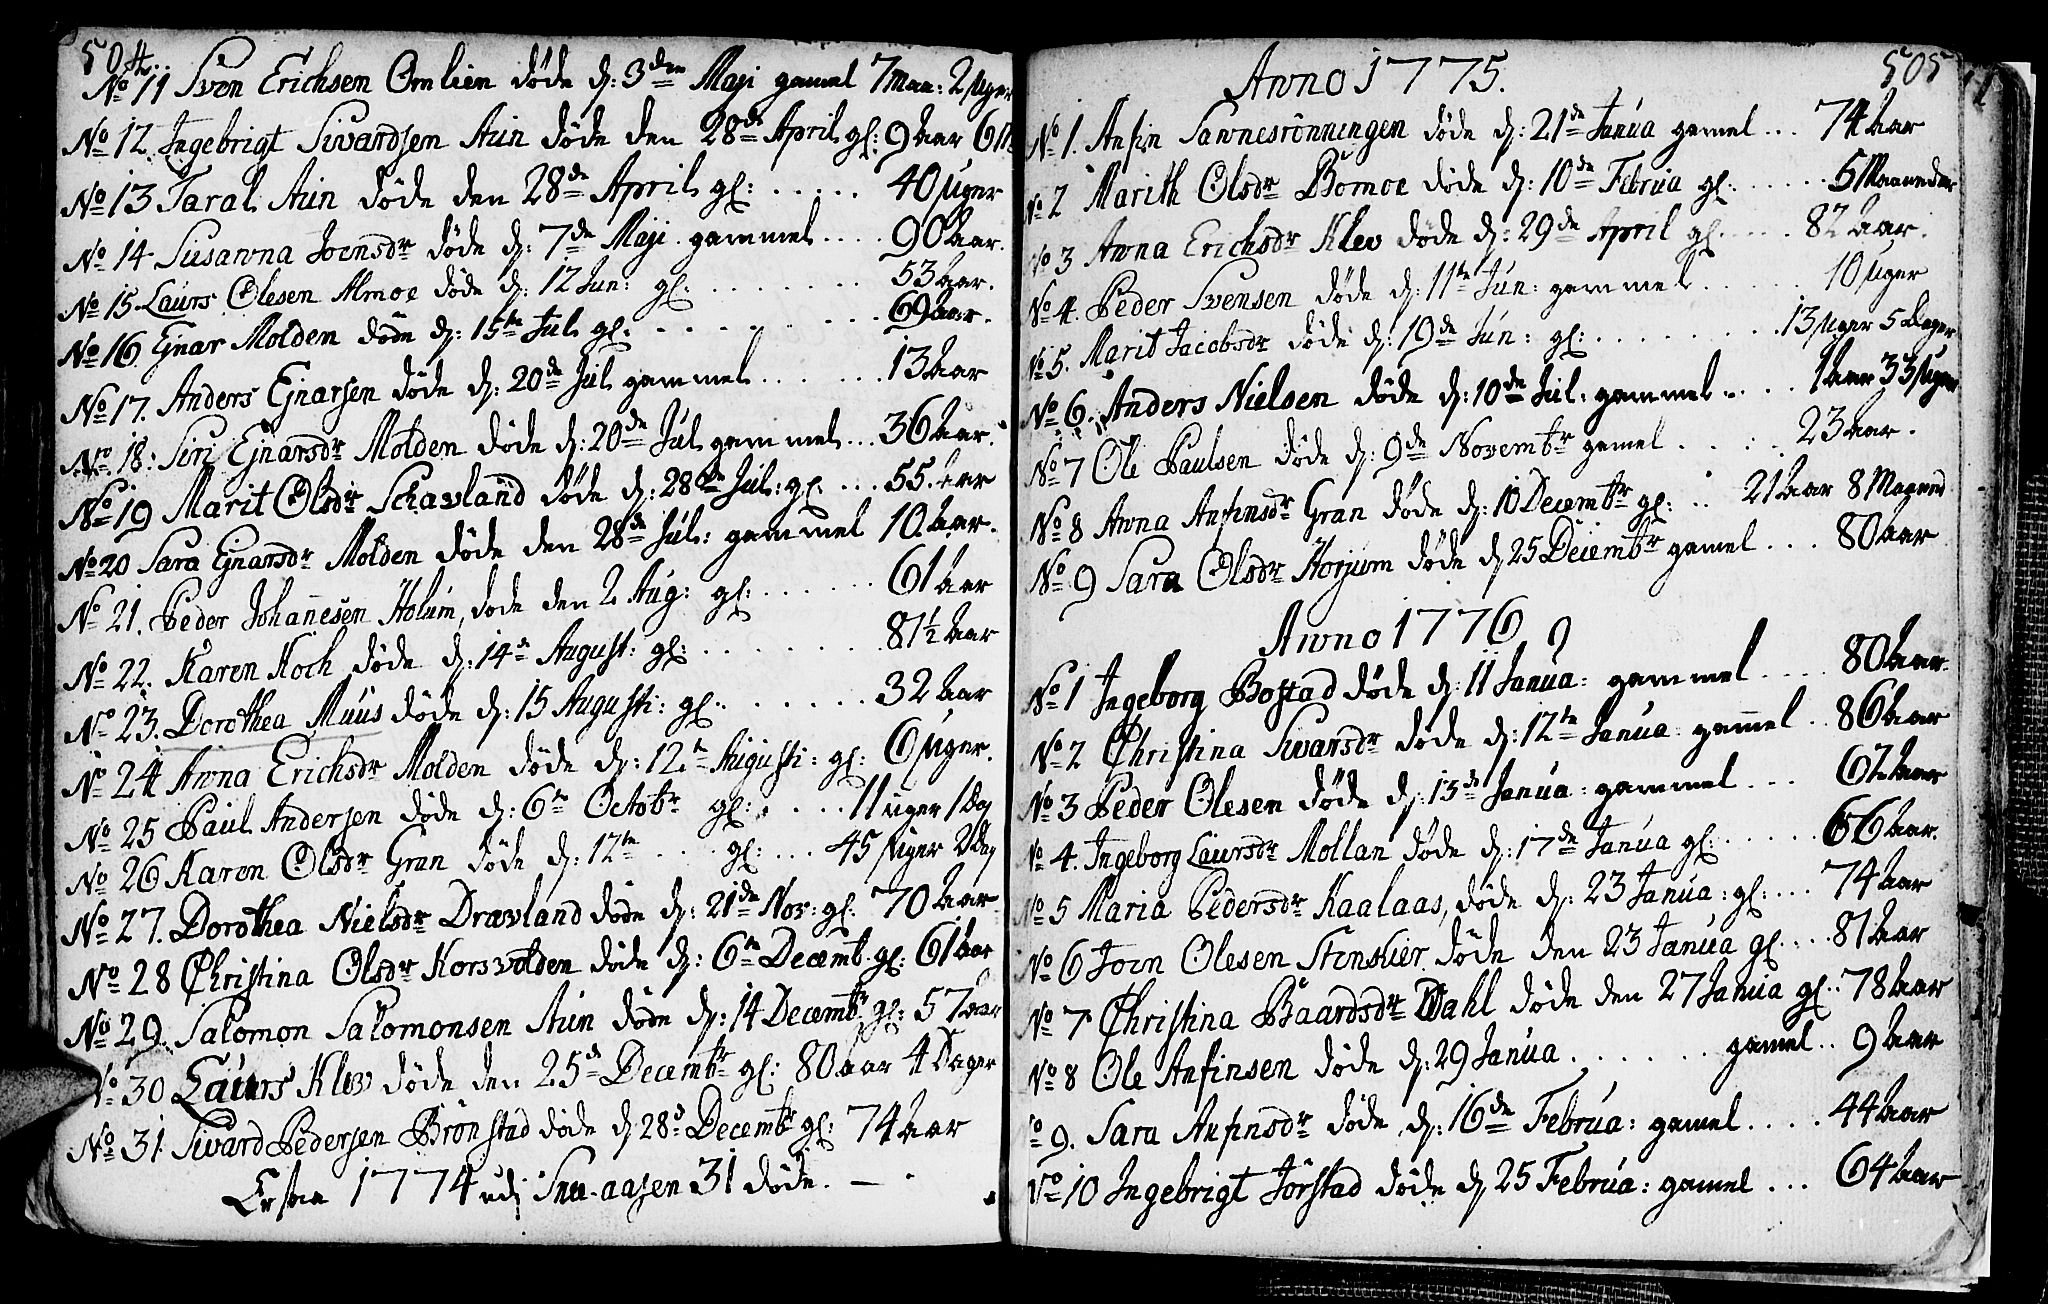 504.
No 11 Sven Erichsen Omlien døde d: 3den Maji gamel 7 Maa: 2 Uger
No 12. Ingebrigt Sivardsen Aün døde den 28de April gl: 9 Aar 6 M
No 13 Taral Aün døde den 28de April gl: ..... 40 Uger
No 14 Susanna Joensdr døde d: 7de Maji gammel .... 90 Aar.
No 15 Laurs Olesen Almoe døde d: 12 Jun: gl: ........ 53 Aar.
No 16 Ejnar Molden døde d: 15te Jul gl: ......... 69 Aar.
No 17. Anders Ejnarsen døde d: 20de Jul gammel ...... 13 Aar
No 18: Siri Ejnarsdr Molden døde d: 20de Jul gammel ... 36 Aar.
No 19 Marit Olsdr Schavland døde d: 28de Jul: gl: ... 55. Aar
No 20 Sara Ejnarsdr Molden døde den 28de Jul: gammel 10. Aar.
No 21. Peder Johannesen Holüm, døde den 2. Aug: gl: ...... 61 Aar
No 22. Karen Koch døde d: 14de August: gl: ........ 81½ Aar
No 23. Dorothea Muus døde d: 15 Augusti: gl: ....... 32 Aar
No 24 Anna Erichsdr Molden døde d: 12te Augusti: gl: 6 Uger.
No 25 Paul Andersen døde d: 6te Octobr gl: .... 11 uger 1 Dag
No 26 Karen Olsdr Gran døde d: 12te ... gl: ... 45 Uger 2 Dag
No 27. Dorothea Nielsdr Dravland døde d: 21de Nov: gl: 70 Aar
No 28 Christina Olsdr Korsvolden døde d: 6te Decemb. gl: 61 Aar
No 29. Salomon Salomonsen Aün døde d: 14 Decembr gl: 57 Aar
No 30 Laurs Klev døde den 25de Decembr gl: 80 aar 4 Dager
No 31 Sivard Pedersen Brönstad døde d 28de Decembr gl: 74 Aar
1774 udi Snee-aasen 31 døde. —
505
Anno 1775.
No 1. Anfin Sannesrönningen døde d: 21de Janüa gamel ... 74 Aar
No 2 Marith Olsdr Bomoe døde d: 10de Febrüa gl: ..... 5 Maaneder
No 3 Anna Erichsdr Klev døde d: 29de April gl: .... 82 Aar.
No 4. Peder Svensen døde d: 11te Jun: gammel ..... 10 Uger
No 5. Marit Jacobsdr døde d: 19de Jün: gl: ........ 13 Uger 5 Dager
No 6. Anders Nielsen døde d: 10de Jul: gammel .... 1 Aar 33 Uger
No 7 Ole Paulsen døde d: 9de Novembr gamel ..... 23 Aar.
No 8 Anna Anfinsdr Gran døde d: 10 Decembr gl: .. 21 Aar 8 Maaned
No 9 Sara Olsdr Horjum døde d 25 Decembr gamel ... 80 Aar
Anno 1776
No 1 Ingeborg Bostad døde d: 11 Janüa: gammel .... 80 Aar.
No 2 Christina Sivarsdr døde d: 12te Janüa: gamel .. 86 Aar
No 3 Peder Olesen døde d: 13de Janüa: gammel ... 62 Aar
No 4. Ingeborg Laursdr Mollan døde d: 17de Janüa gl: ..... 66 Aar.
No 5 Maria Pedersdr Kaalaas, døde d: 23 Janüa: gl: ... 74 Aar
No 6 Joen Olesen Stenskier døde den 23 Janüa gl .... 81 Aar
No 7 Christina Baardsdr Dahl døde den 27 Janüa gl: .. 78 Aar
No 8 Ole Anfinsen døde d: 29 Janüa ....... gamel .. 9 Aar
No 9. Sara Anfinsdr døde d: 16de Febrüa: gamel .... 44 Aar
No 10 Ingebrigt Jörstad døde d 25 Febrüa: gamel ... 64 Aar